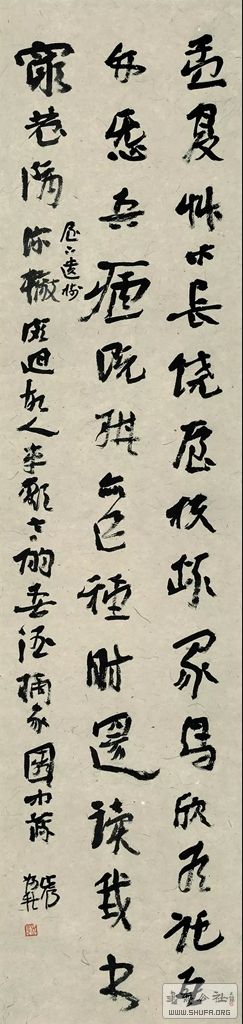 孟夏艸木長繞屋扶疎眾鳥欣有託吾
亦愛吾廬既耕亦已種時還讀我書
屋下遺樹
窮巷隔深轍頗迴故人車歡言酌春酒摘我園中蔬
WWW.SHUFA.ORG